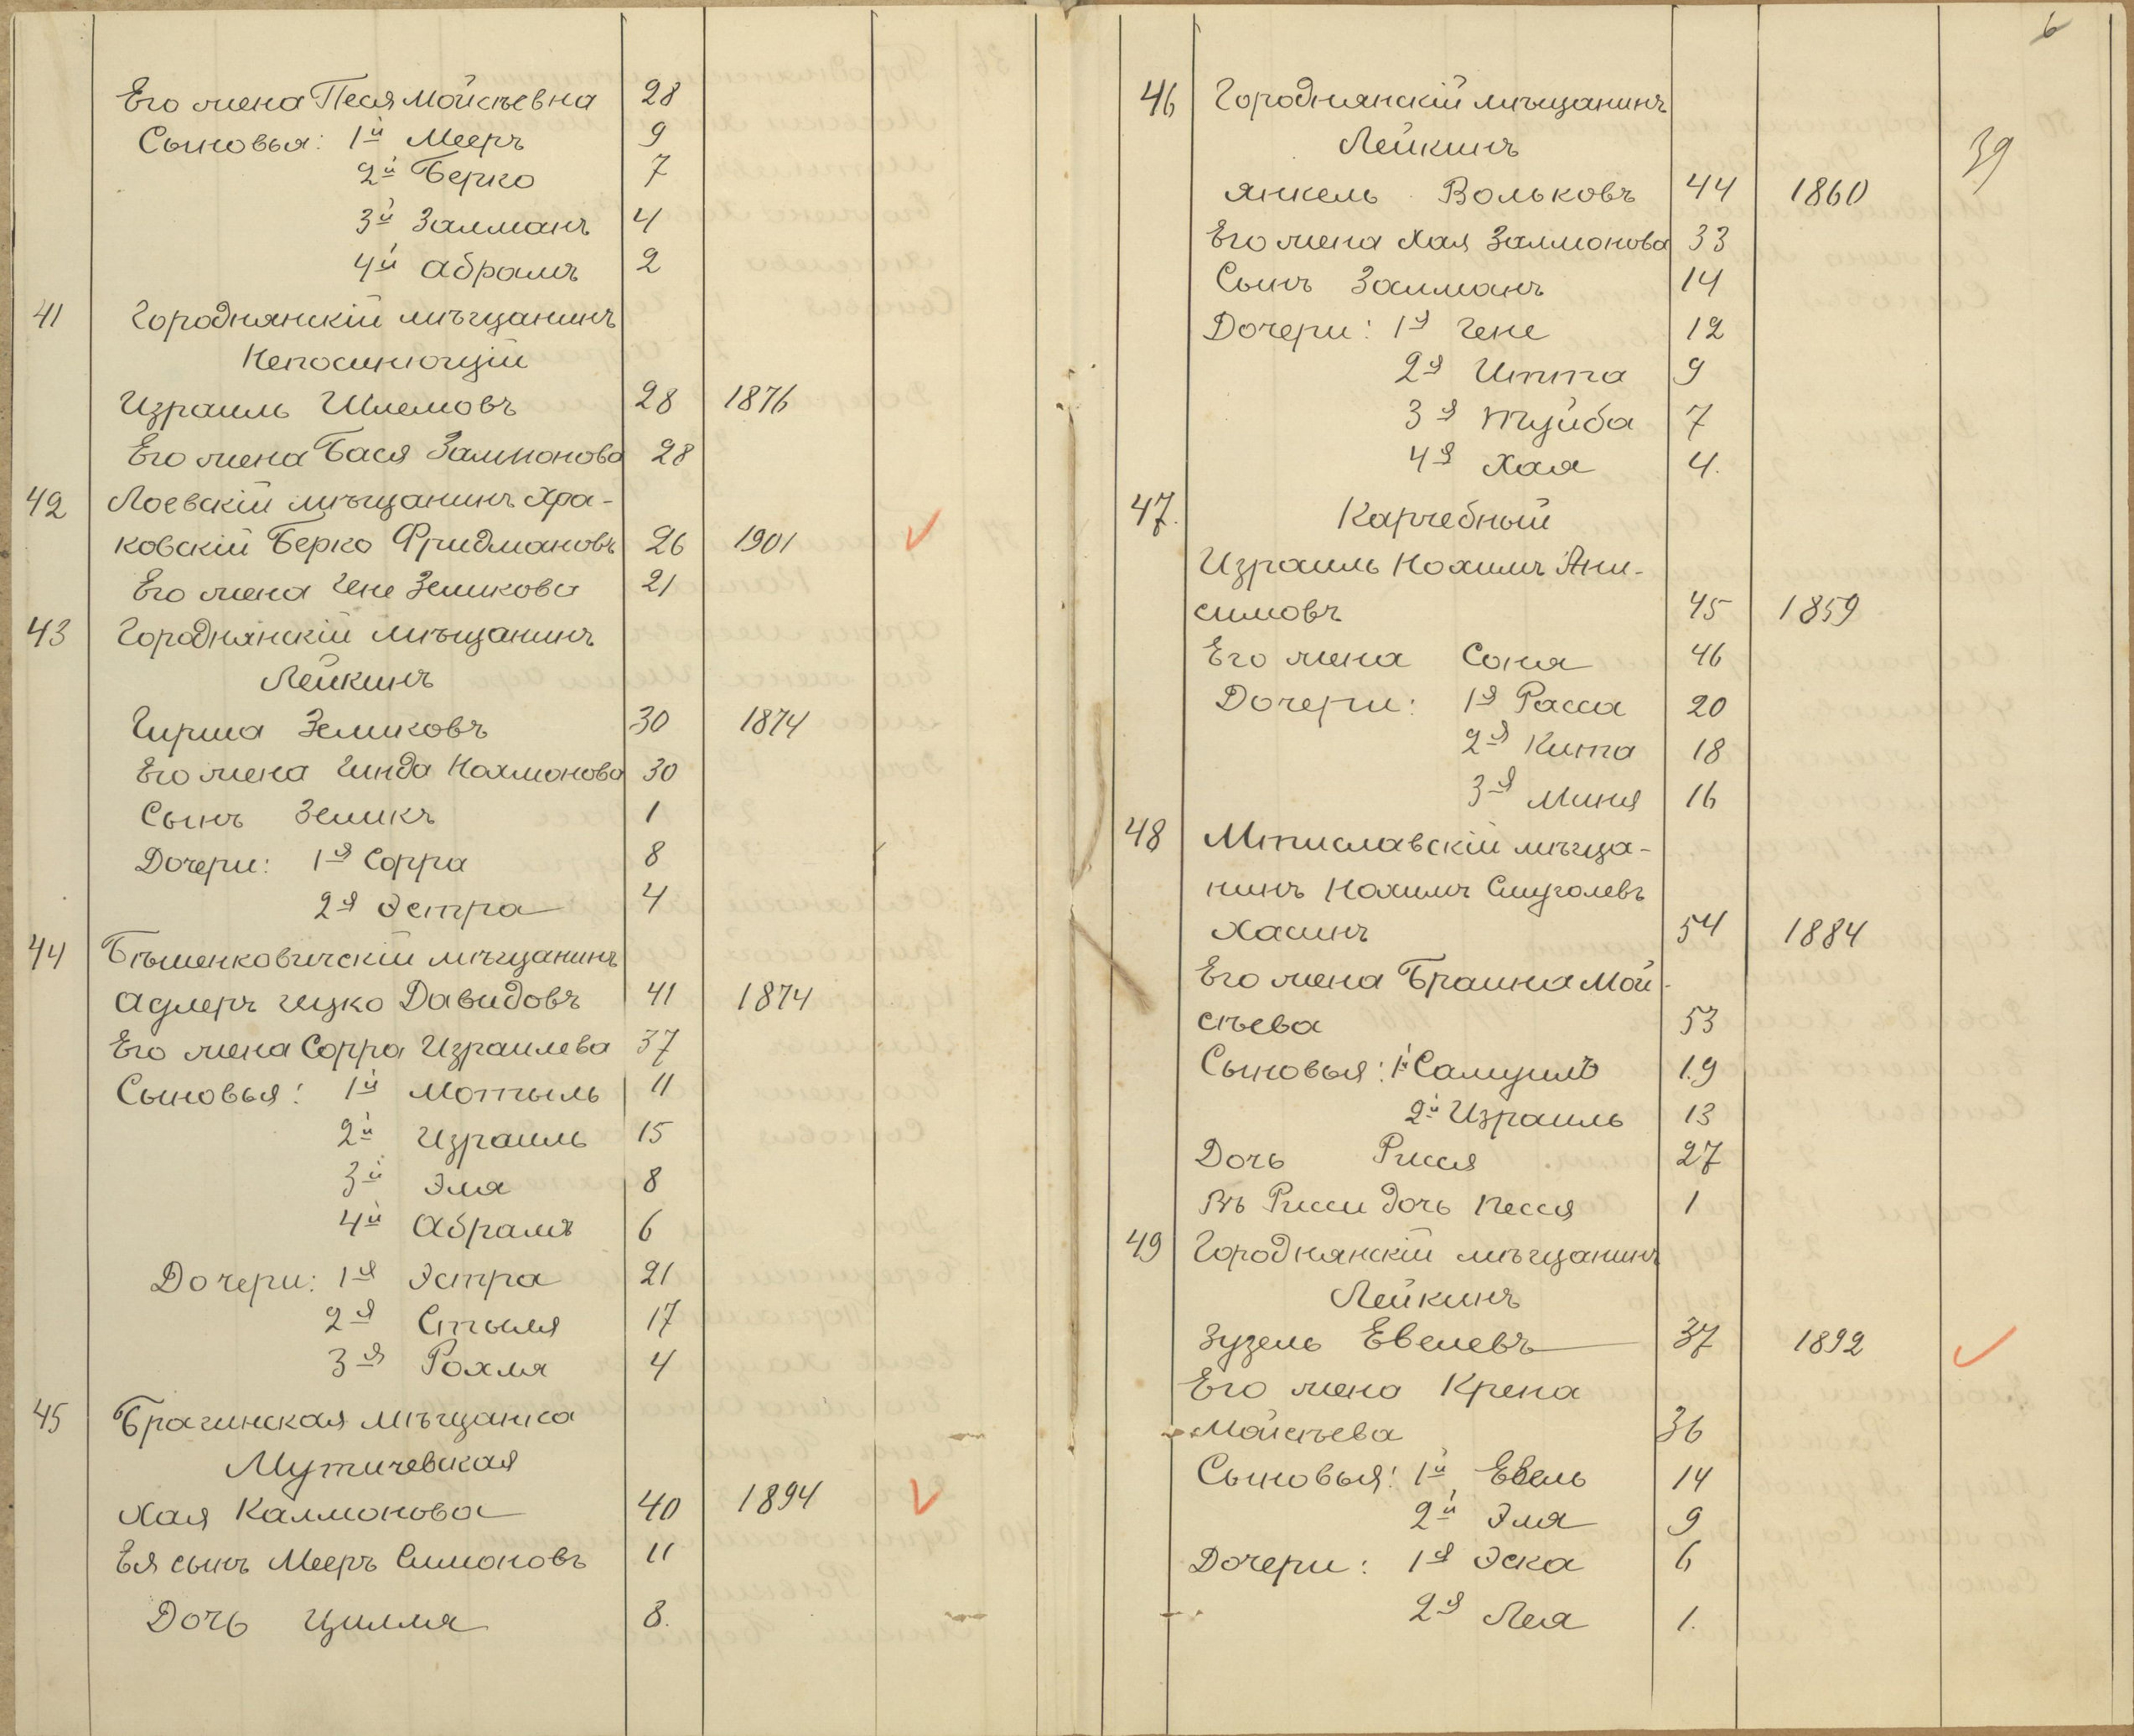 Его жена Песя Мойсѣевна 28
Сыновья: 1й Мееръ 9
2й Берко 7
3й Залманъ 4
4й Абрамъ 2
41 Городнянскій мѣщанинъ
Непомнющій
Израиль Шлемовъ 28 1876
Его жена Бася Залмонова 28
42 Лоевскій мѣщанинъ Хра-
ковскій Берко Фридмановъ 26 1901
Его жена Гене Зеликова 21
43 Городнянскій мѣщанинъ
Лейкинъ
Гирша Зеликовъ 30 1874
Его жена Гинда Нохмонова 30
Сынъ Зеликъ 1
Дочери: 1я Сорра 8
2я Эстра 4
44 Бѣшенковичскій мѣщанинъ
Адлеръ Ицко Давидовъ 41 1874
Его жена Сорра Израилева 37
Сыновья: 1й Мотыль 11
2й Израиль 15
3й Эля 8
4й Абрамъ 6
Дочери: 1я Эстра 21
2я Стыля 17
3я Рохля 4
45 Брагинская мѣщанка
Мутичевская
Хая Калмонова 40 1894
Ея сынъ Мееръ Симоновъ 11
Дочь Цилля 8.
6
46 Городнянскій мѣщанинъ
Лейкинъ
39
Янкель Вольковъ 44 1860
Его жена Хая Залмонова 33
Сынъ Залманъ 14
Дочери: 1я Гене 12
2я Итта 9
3я Туйба 7
4я Хая 4.
47. Карчебный
Израиль Нохимъ Ани-
симовъ 45 1859
Его жена Соня 46
Дочери: 1я Расса 20
2я Кита 18
3я Миня 16
48 Мтиславскій мѣща-
нинъ Нохимъ Смуголевъ
Хасинъ 54 1884
Его жена Браина Мой-
сѣева 53
Сыновья: 1й Самуилъ 19
2й Израиль 13
Дочь Рися 27
Въ Риси дочь Песся 1
49 Городнянскій мѣщанинъ
Лейкинъ
Зузель Евелевъ 37 1892
Его жена Крена
Мойсѣева 36
Сыновья: 1й Евель 14
2й Эля 9
Дочери: 1я Эска 6
2я Лея 1.